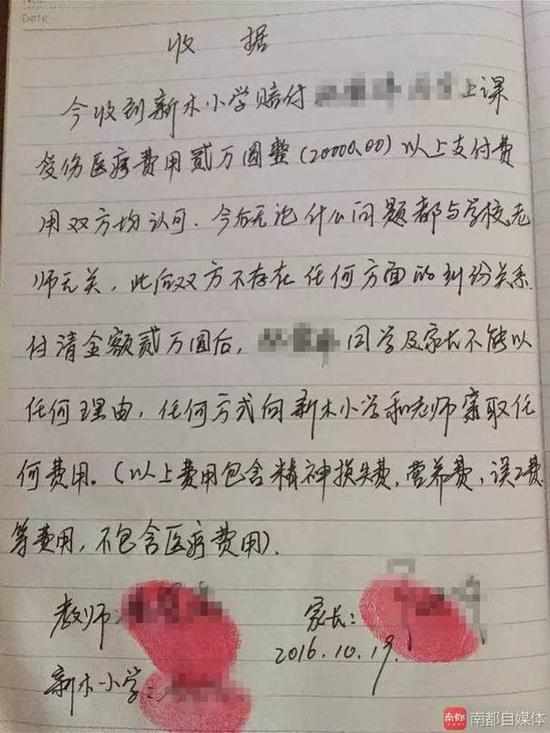 DATE
收 据
今收到新木小学赔付 上课
受伤医疗费用贰万圆整(20000.00)以上支付费
用双方均认可.今后无论什么问题都与学校老
师无关,此后双方不存在任何方面的纠纷关系.
付清金额贰万圆后, 同学及家长不能以
任何理由,任何方式向新木小学和老师索取任
何费用.(以上费用包含精神损失费,营养费,误工费
等费用,不包含医疗费用).
教师: 家长:
2016.10.19.
新木小学:
南都 南都自媒体